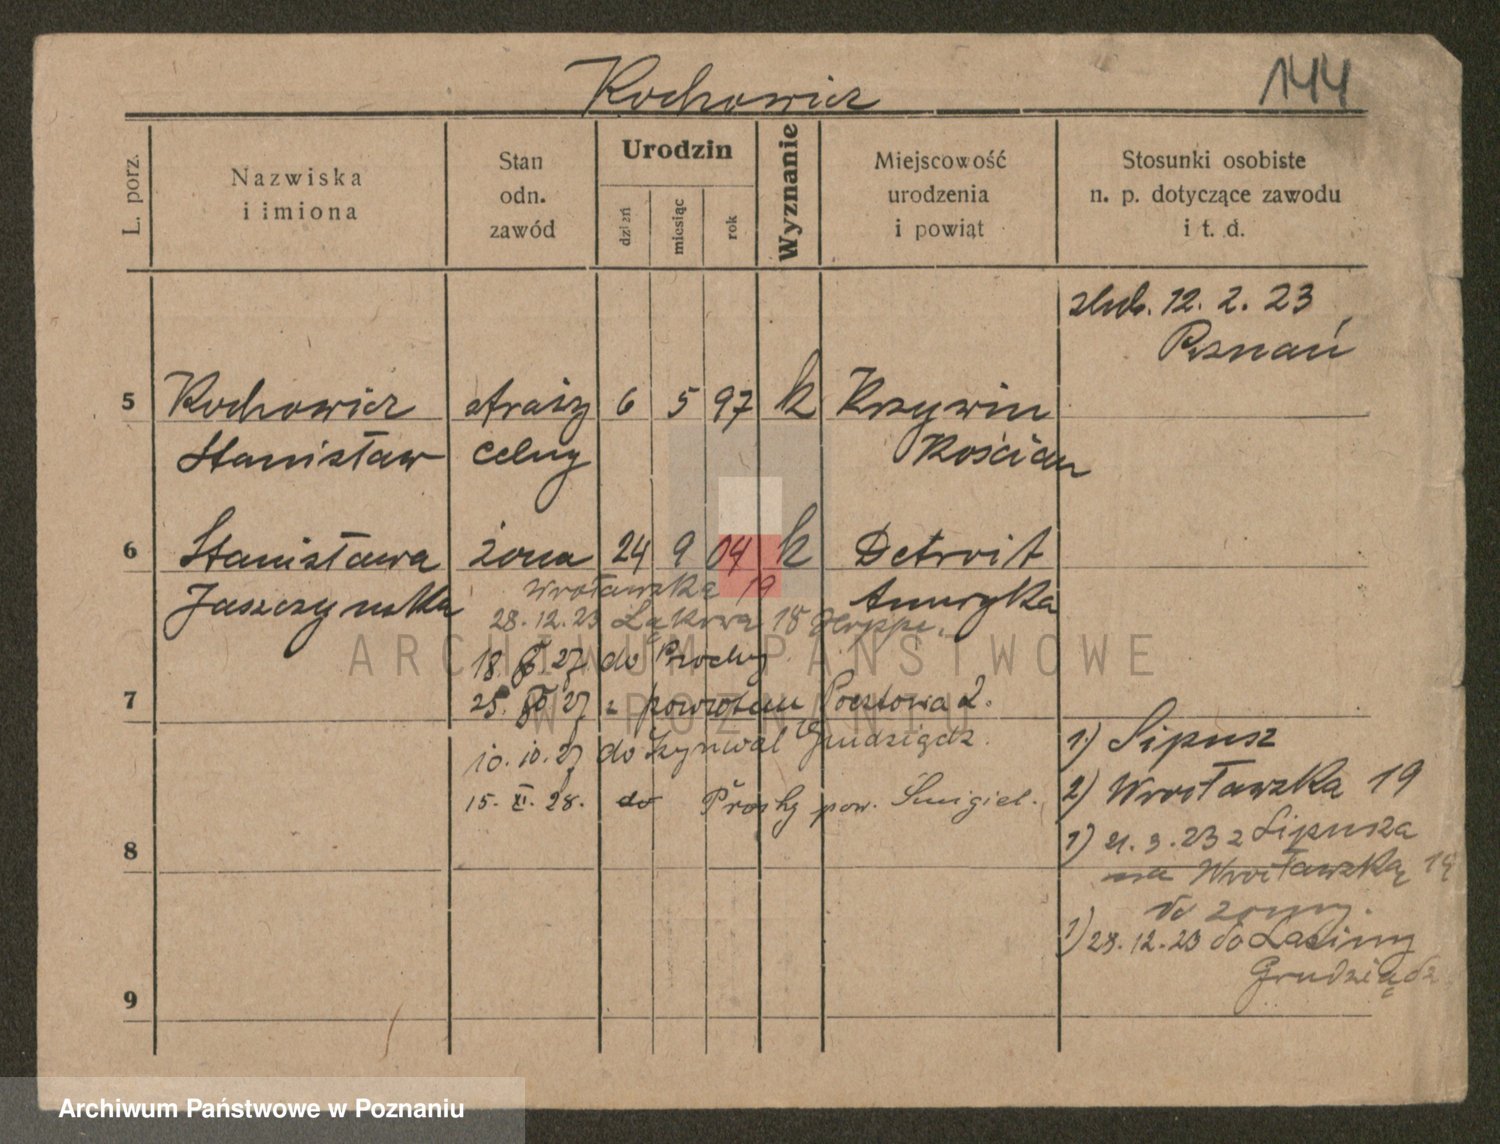 Kochowicz
144
L. porz.
Nazwiska
i imiona
Stan
odn.
zawód
Urodzin
dzień
miesiąc
rok
Wyznanie
Miejscowość
urodzenia
i powiat
Stosunki osobiste
n. p. dotyczące zawodu
i t. d.
ślub. 12. 2. 23
Poznań
5 Kochowicz straży 6 5 97 k Krzywin
Stanisław celny Kościan
6 Stanisława żona 24 9 04 k Detroit
Jaszczyńska Ameryka
Wrocławska 19
28.12.23 Łąkowa 18
18. 27 do Prochy
7 25. 27 z powrotem Pocztowa 2.
10.10.27 do Grudziądz.
15. XI. 28. do Prochy pow. Śmigiel.
1) Sipusz
2) Wrocławska 19
1) 21. 3. 23 z Sipusza
na Wrocławską 19
do żony.
1) 28.12.23 do
Grudziądz
8
9
ARCHIWUM PAŃSTWOWE
W POZNANIU
Archiwum Państwowe w Poznaniu